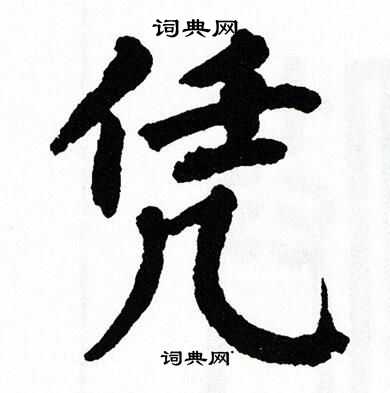 词典网
凭
词典网